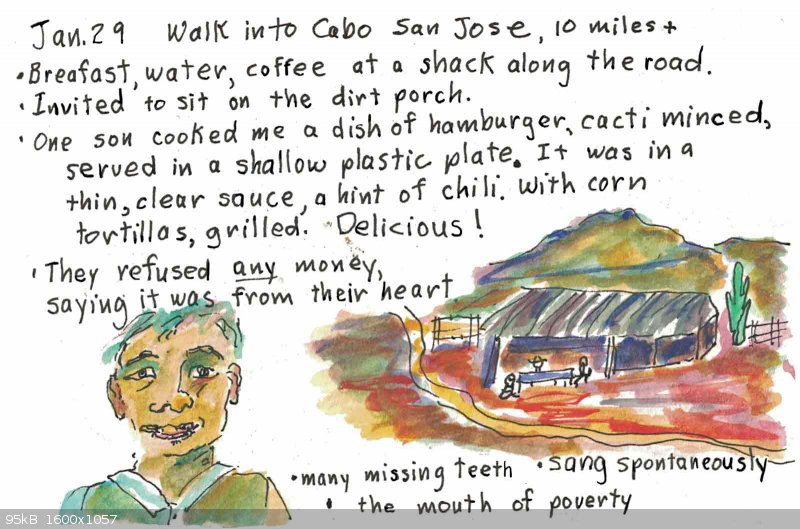 Jan.29 Walk into Cabo San Jose, 10 miles+
•Breafast, water, coffee at a shack along the road.
•Invited to sit on the dirt porch.
•One son cooked me a dish of hamburger, cacti minced,
served in a shallow plastic plate. It was in a
thin, clear sauce, a hint of chili. With corn
tortillas, grilled. Delicious!
•They refused any money,
saying it was from their heart
•many missing teeth •sang spontaneously
• the mouth of poverty
95kB 1600x1057